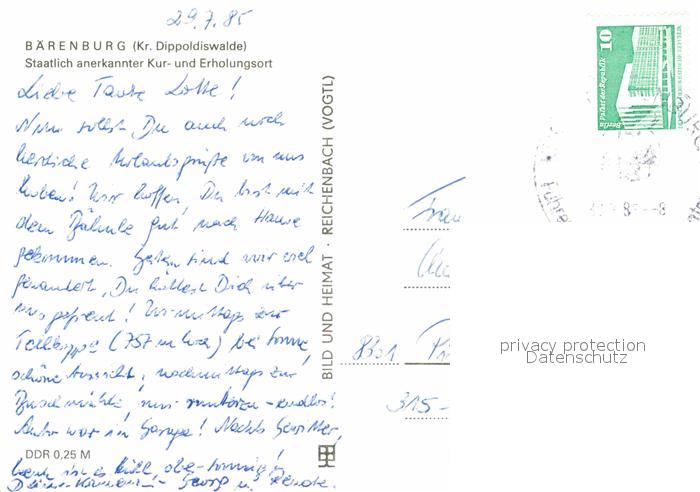 29.7.85
BÄRENBURG (Kr. Dippoldiswalde)
Staatlich anerkannter Kur- und Erholungsort
Liebe Tante Lotte!
Nun sollst Du auch noch
herzliche Urlaubsgrüße von uns
haben! Wir hoffen, Du bist mit
dem Bähnle gut nach Hause
gekommen. Gestern sind wir viel
gewandert, Du hättest Dich über
uns gefreut! Vormittags zur
Tellkoppe (757 m hoch) bei Sonne,
schöne Aussicht, nachmittags zur
Buschmühle, nur
Auto war in Garage! Nachts Gewitter,
heute ist es kühl, aber sonnig!
Georg u. Renate.
DDR 0,25 M
BILD UND HEIMAT · REICHENBACH (VOGTL)
10
Palast der Republik
Berlin
Frau
315-
privacy protection
Datenschutz